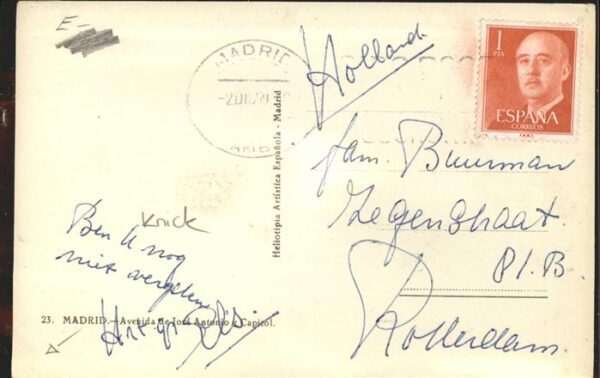 E-
MADRID
Holland
1
PTA
ESPAÑA
CORREOS
Heliotipia Artística Española - Madrid
fam. Buurman
Zegenstraat
81.B.
Rotterdam.
Knick
Ben U nog
niet vergeten
23. MADRID.—Avenida de José Antonio y Capitol.
Hrt. gr.